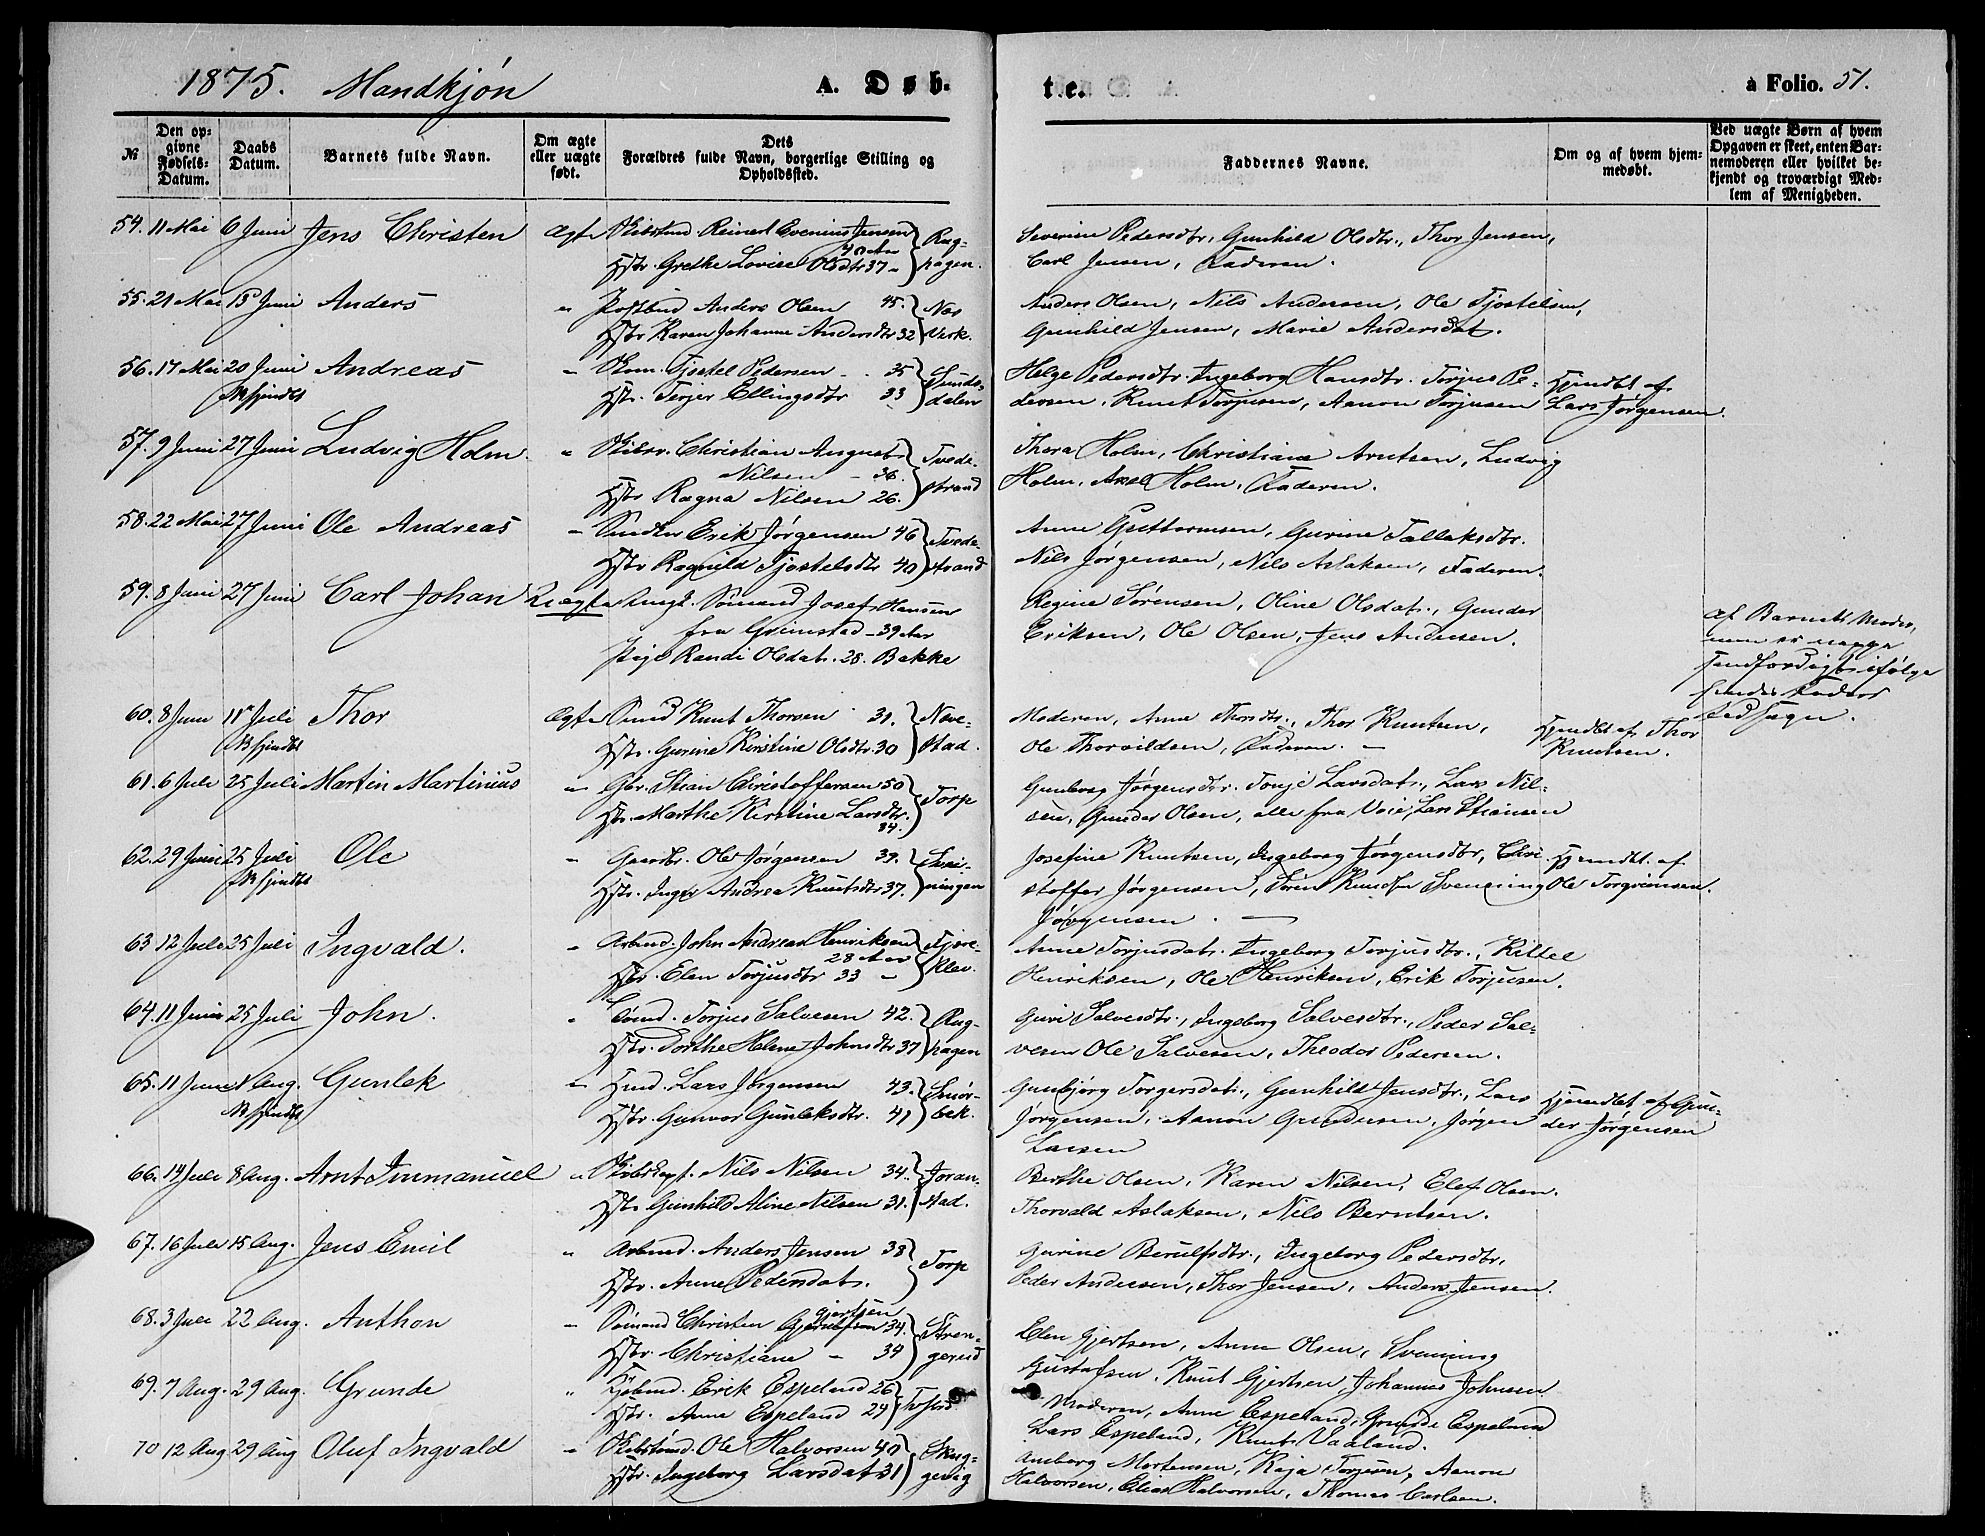 1875. Mandkjøn A. Døb-
te. a Folio. 51.
№
Den op-
givne
Fødsels-
Datum.
Daabs
Datum.
Barnets fulde Navn.
Om ægte
eller uægte
født.
Dets
Forældres fulde Navn, borgerlige Stilling og
Opholdssted.
Faddernes Navne.
Om og af hvem hjem-
medøbt.
Ved uægte Børn af hvem
Opgaven er skeet, enten Bar-
nemoderen eller hvilket be-
kjendt og troværdigt Med-
lem af Menigheden.
54. 11 Mai 6 Juni Jens Christen Ægte Reinert Evenius Jensen 40 Aar
Hstr. Grethe Lovise Olsdtr 37 Rughagen.
Severine Pedersdtr, Gunhild Olsdtr., Thor Jensen,
Carl Jensen, Faderen.
55. 21 Mai 13 Juni Anders " Postbud Anders Olsen 45. Næs
Hstr Karen Johanne Andersdtr 32 Verk.
Anders Olsen, Nils Andersen, Ole Tjostelsen,
Gunhild Jensen, Marie Andersdat.
56. 17 Mai 20 Juni Andreas " Tjostel Pedersen 35 Sunds-
Hstr. Terjer Ellingsdtr 33 dalen
Helge Pedersdtr. Ingeborg Hansdtr. Torjus Pe- Hjemdbt af
dersen. Knut Torjusen, Aanon Torjusen Lars Jørgensen.
57. 9 Juni 27 Juni Ludvig Holm. " Skibsr. Christian August Tvede-
Nilsen - 36. strand
Hstr Ragna Nilsen 26.
Thora Holm, Christiane Arntsen, Ludvig
Holm, Axel Holm, Faderen.
58. 22 Mai 27 Juni Ole Andreas " Erik Jørgensen 46 Tvede-
Hstr Ragnild Tjostelsdtr 40 strand
Anne Guttormsen, Gurine Tallaksdtr.
Nils Jørgensen, Nils Aslaksen, Faderen.
59. 8 Juni 27 Juni Carl Johan Uægte Ungk. Sømand Josef Hansen
fra Grimstad - 39 Aar
Pige Randi Olsdat. 28. Bakke
Regine Sørensen, Oline Olsdat., Gunder
Eriksen, Ole Olsen, Jens Andersen.
af Barnets Moder,
men er neppe
ifølge
hendes Faders
Udsagn.
60. 8 Juni 11 Juli Thor Ægte Smed Knut Thorsen 31. Neve-
Hstr. Gurine Kirstine Olsdtr 30 stad.
Moderen, Anne Thorsdtr., Thor Knutsen, Hjemdbt af Thor
Ole Thorvildsen, Faderen. - Knutsen.
61. 6 Juli 25 Juli Martin Martinius " Gbr. Stian Christoffersen 50 Torp
Hstr. Marthe Kirstine Larsdtr. 34.
Gunborg Jørgensdtr. Tonje Larsdat., Lars Nil-
sen, Gunder Olsen, alle fra Voie, Lars Stiansen
62. 29 Juni 25 Juli Ole " Gaardbr. Ole Jørgensen 39.
Hstr. Inger Andrea Knutsdtr 37.
Josefine Knutsen, Ingeborg Jørgensdtr, Chri- Hjemdbt. af
stoffer Jørgensen, Søren Knudsen Svenning Ole Torgrimsen.
Jørgensen. -
63 12 Juli 25 Juli Ingvald. " Arbmd. John Andreas Henriksen Fjære-
28 Aar klev.
Hstr. Elen Torjusdtr 33 "
Anne Torjusdat. Ingeborg Torjusdtr., Kittel
Henriksen, Ole Henriksen, Erik Torjusen.
64. 11 Juni 25 Juli John. " Sømd. Torjus Salvesen 42. Rug-
Hstr. Dorthe Helene Johnsdtr 37 hagen
Guri Salvesdtr., Ingeborg Salvesdtr., Peder Sal-
vesen Ole Salvesen, Theodor Pedersen.
65. 11 Juni 1 Aug. Gunlek " Hmd. Lars Jørgensen 43. Smør-
Hstr. Gunvor Gunleksdtr. 41 bek.
Gunbjørg Torgersdat., Gunhild Jensdtr., Lars Hjemdbt. af Gun-
Jørgensen, Aanon Gundersen, Jørgen der Jørgensen
Larsen
66. 14 Juli 8 Aug. Arnt Immanuel " Skibskapt. Nils Nilsen 34. Joran-
Hstr Gunhild Aline Nilsen 31. stad.
Berthe Olsen, Karen Nilsen, Elef Olsen.
Thorvald Aslaksen, Nils Berntsen.
67. 16 Juli 15 Aug. Jens Emil " Arbmd. Anders Jensen 38 Torp
Hstr. Anne Pedersdat.
Gurine Berulfsdtr., Ingeborg Pedersdtr,
Peder Andersen, Thor Jensen, Anders Jensen.
68. 3 Juli 22 Aug. Anthon - Sømand Christen Gjertsen 34. Stren-
Hstr. Christiane - 34 gerud
Elen Gjertsen, Anne Olsen, Svenning
Gustafsen, Knut Gjertsen, Johannes Johnsen.
69. 7 Aug. 29 Aug. Grunde " Erik Espeland 26
Hstr. Anne Espeland 24
Moderen, Anne Espeland, Grunde Espeland
Lars Espeland, Knut Vaaland.
70 12 Aug 29 Aug Oluf Ingvald " Skibstømd. Ole Halvorsen 40 Skug-
Hstr. Ingeborg Larsdat 31 gevig
Anborg Mortensen, Kaja Torjusen, Aanon
Halvorsen, Elias Halvorsen, Thomas Carlsen.